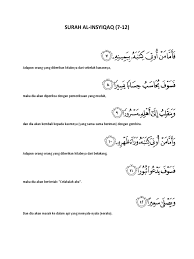 SURAH AL-INSYIQAQ (7-12)
فَأَمَّا مَنْ أُوتِيَ كِتَابَهُ بِيَمِينِهِ ٧
Adapun orang yang diberikan kitabnya dari sebelah kanannya,
فَسَوْفَ يُحَاسَبُ حِسَابًا يَسِيرًا ٨
maka dia akan diperiksa dengan pemeriksaan yang mudah,
وَيَنقَلِبُ إِلَىٰ أَهْلِهِ مَسْرُورًا ٩
dan dia akan kembali kepada kaumnya (yang sama-sama beriman) dengan gembira.
وَأَمَّا مَنْ أُوتِيَ كِتَابَهُ وَرَاءَ ظَهْرِهِ ١٠
Adapun orang-orang yang diberikan kitabnya dari belakang,
فَسَوْفَ يَدْعُو ثُبُورًا ١١
maka dia akan berteriak: "Celakalah aku".
وَيَصْلَىٰ سَعِيرًا ١٢
Dan dia akan masuk ke dalam api yang menyala-nyala (neraka).